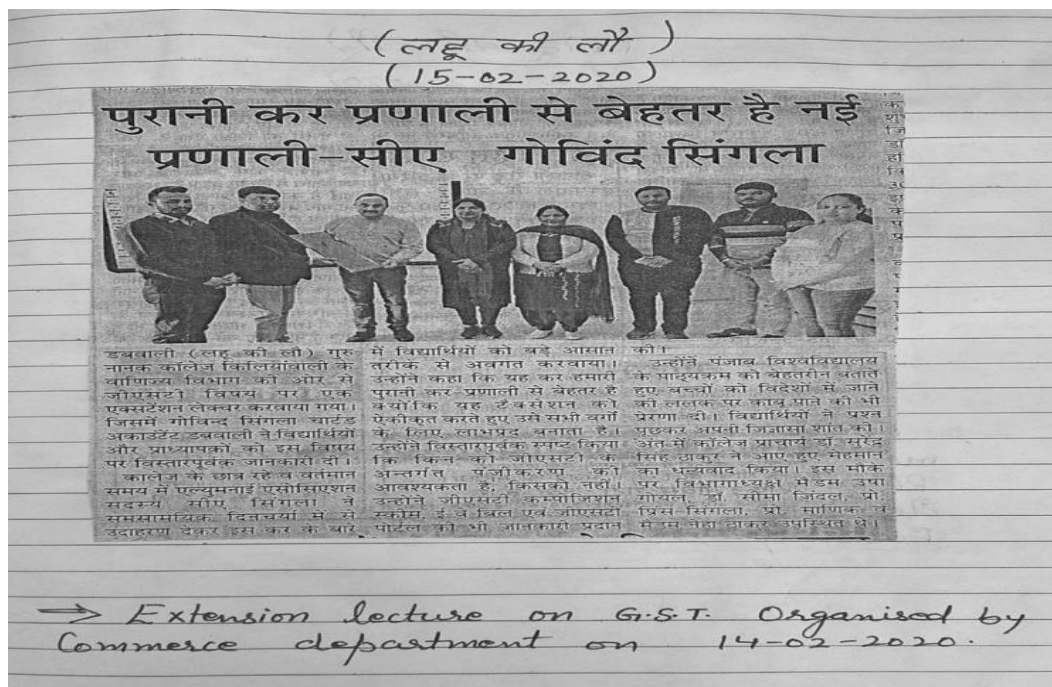 (लहू की लौ)
(15-02-2020)
पुरानी कर प्रणाली से बेहतर है नई
प्रणाली-सीए गोविंद सिंगला
डबवाली (लहू की लौ) गुरु
नानक कॉलेज किलियांवाली के
वाणिज्य विभाग की ओर से
जीएसटी विषय पर एक
एक्सटेंशन लेक्चर करवाया गया।
जिसमें गोविन्द सिंगला चार्टड
अकाउंटेंट डबवाली ने विद्यार्थियों
और प्राध्यापकों को इस विषय
पर विस्तारपूर्वक जानकारी दी।
कालेज के छात्र रहे व वर्तमान
समय में एल्युमनाई एसोसिएशन
सदस्य सीए सिंगला ने
समसामयिक दिनचर्या में से
उदाहरण देकर इस कर के बारे
में विद्यार्थियों को बड़े आसान
तरीके से अवगत करवाया।
उन्होंने कहा कि यह कर हमारी
पुरानी कर-प्रणाली से बेहतर है
क्योंकि यह टैक्सेशन को
एकीकृत करते हुए उसे सभी वर्गों
के लिए लाभप्रद बनाता है।
उन्होंने विस्तारपूर्वक स्पष्ट किया
कि किन को जीएसटी के
अन्तर्गत पंजीकरण की
आवश्यकता है, किसको नहीं।
उन्होंने जीएसटी कम्पोजिशन
स्कीम, ई वे बिल एवं जीएसटी
पोर्टल की भी जानकारी प्रदान
की।
उन्होंने पंजाब विश्वविद्यालय
के पाठ्यक्रम को बेहतरीन बताते
हुए बच्चों को विदेशों में जाने
की ललक पर काबू पाने की भी
प्रेरणा दी। विद्यार्थियों ने प्रश्न
पूछकर अपनी जिज्ञासा शांत की।
अंत में कॉलेज प्राचार्य डॉ. सुरेंद्र
सिंह ठाकुर ने आए हुए मेहमान
का धन्यवाद किया। इस मौके
पर विभागाध्यक्ष मैडम उषा
गोयल, डॉ. सीमा जिंदल, प्रो.
प्रिंस सिंगला, प्रो. माणिक व
मैडम नेहा ठाकुर उपस्थित थे।
⇒ Extension lecture on G.S.T. Organised by
Commerce department on 14-02-2020.